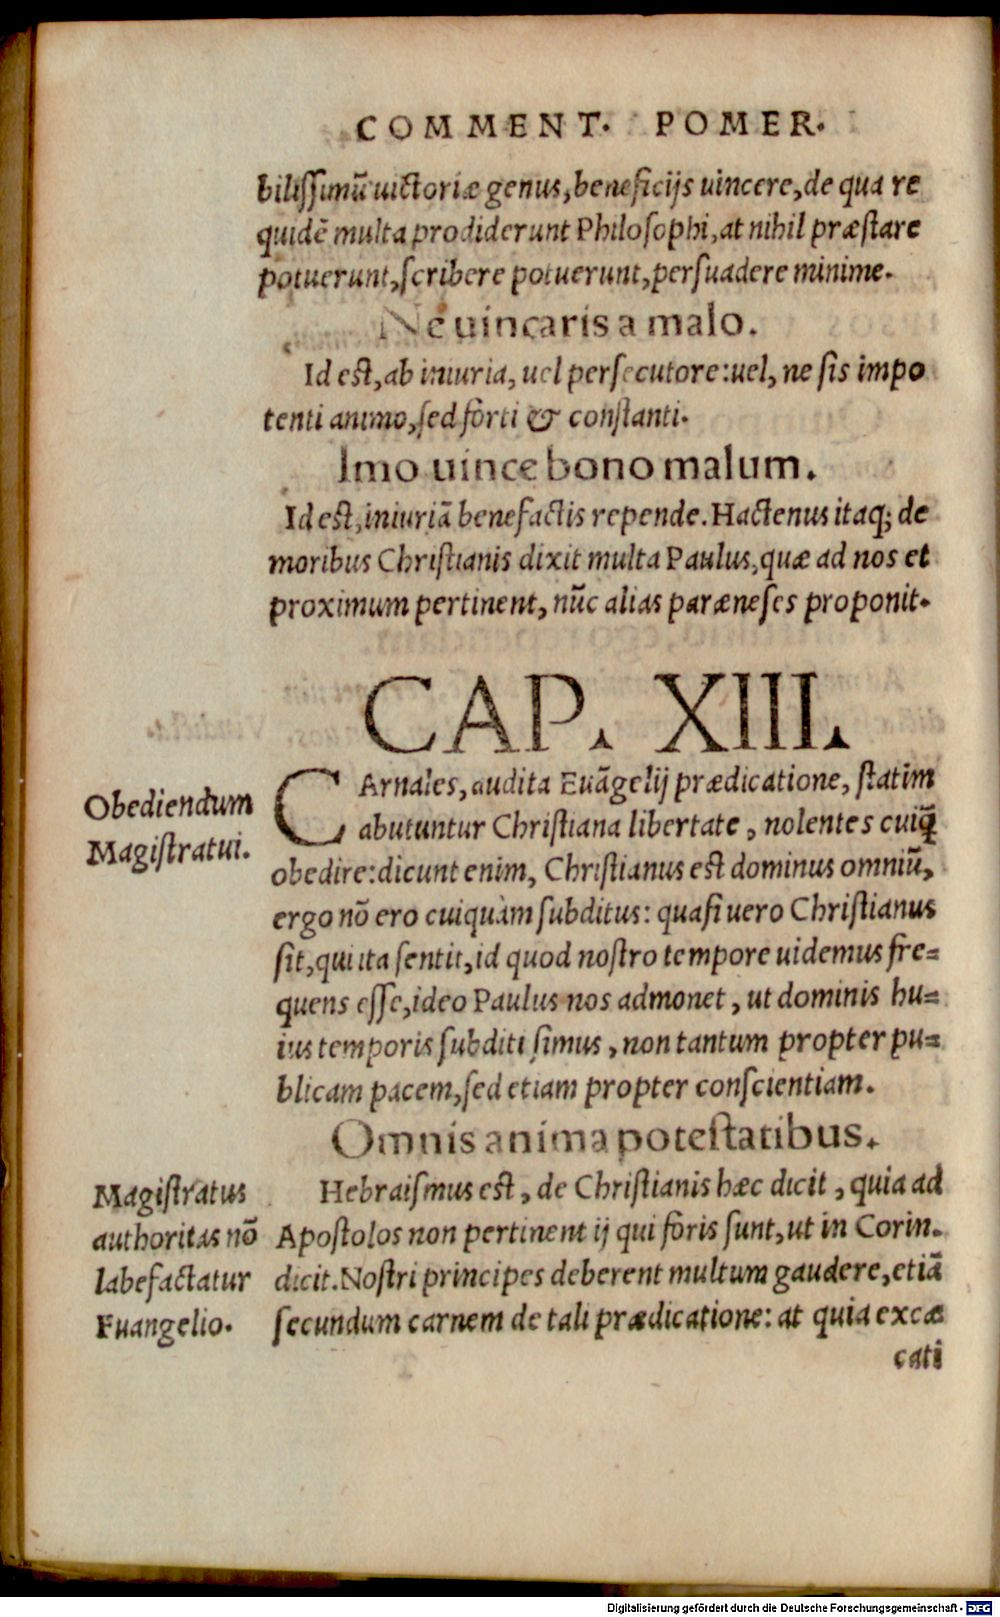 COMMENT. POMER.
biliſſimū uictoriæ genus, beneficijs uincere, de qua re
quidē multa prodiderunt Philoſophi, at nihil præſtare
potuerunt, ſcribere potuerunt, perſuadere minime.
Ne uincaris a malo.
Id eſt, ab iniuria, uel perſecutore: uel, ne ſis impo
tenti animo, ſed forti & conſtanti.
Imo uince bono malum.
Id eſt, iniuriā benefactis repende. Hactenus itaq; de
moribus Chriſtianis dixit multa Paulus, quæ ad nos et
proximum pertinent, nūc alias paræneſes proponit.
CAP. XIII.
Obediendum
Magiſtratui.
CArnales, audita Euāgelij prædicatione, ſtatim
abutuntur Chriſtiana libertate, nolentes cuiq̄
obedire: dicunt enim, Chriſtianus eſt dominus omniū,
ergo nō ero cuiquàm ſubditus: quaſi uero Chriſtianus
ſit, qui ita ſentit, id quod noſtro tempore uidemus fre=
quens eſſe, ideo Paulus nos admonet, ut dominis hu=
ius temporis ſubditi ſimus, non tantum propter pu=
blicam pacem, ſed etiam propter conſcientiam.
Omnis anima poteſtatibus.
Magiſtratus
authoritas nō
labefactatur
Euangelio.
Hebraiſmus eſt, de Chriſtianis hæc dicit, quia ad
Apoſtolos non pertinent ij qui foris ſunt, ut in Corin.
dicit. Noſtri principes deberent multum gaudere, etiā
ſecundum carnem de tali prædicatione: at quia excæ
cati
Digitalisierung gefördert durch die Deutsche Forschungsgemeinschaft - DFG